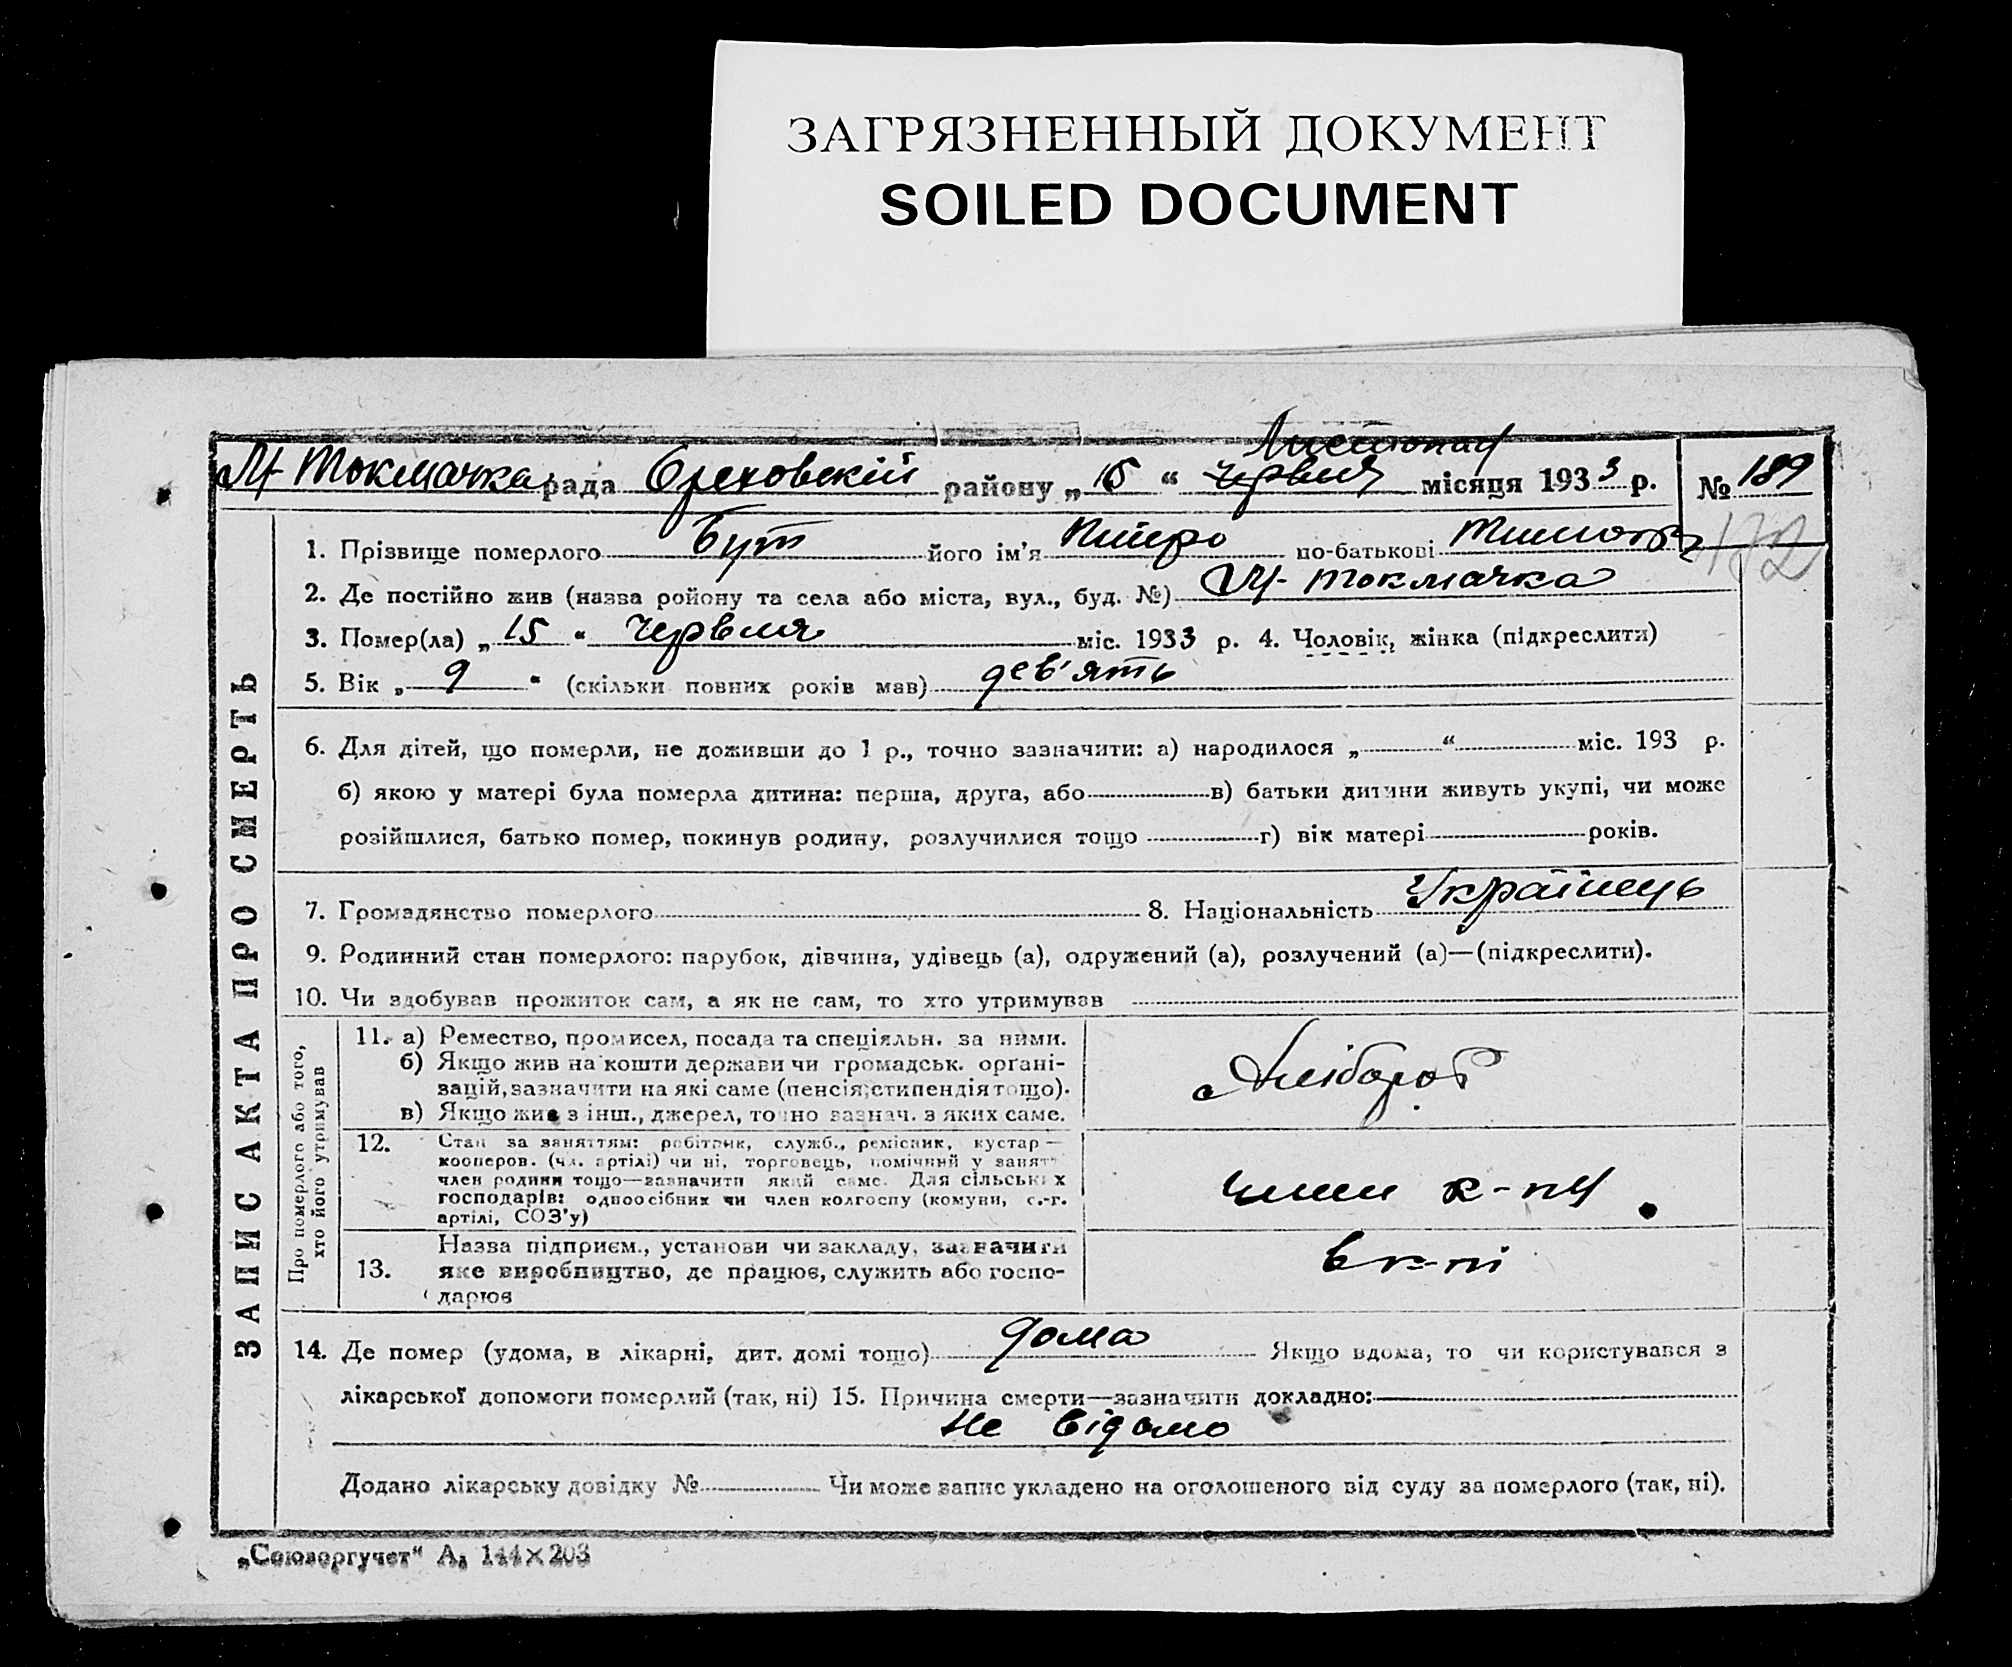 ЗАГРЯЗНЕННЫЙ ДОКУМЕНТ
SOILED DOCUMENT
Листопад
М-Токмачка рада Ореховскій району „ 15 “ червня місяця 1933 р. № 189
1. Прізвище померлого Бут його ім'я Пийро по-батькові 172
2. Де постійно жив (назва ройону та села або міста, вул., буд. №) М-Токмачка
3. Помер(ла) „ 15 “ червня міс. 1933 р. 4. Чоловік, жінка (підкреслити)
5. Вік „ 9 “ (скільки повних років мав) дев'ять
6. Для дітей, що померли, не доживши до 1 р., точно зазначити: а) народилося „ “ міс. 193 р.
б) якою у матері була померла дитина: перша, друга, або в) батьки дитини живуть укупі, чи може
розійшлися, батько помер, покинув родину, розлучилися тощо г) вік матері років.
7. Громадянство померлого 8. Національність Українець
9. Родинний стан померлого: парубок, дівчина, удівець (а), одружений (а), розлучений (а)—(підкреслити).
10. Чи здобував прожиток сам, а як не сам, то хто утримував
ЗАПИС АКТА ПРО СМЕРТЬ
Про померлого або того, хто його утримував
11. а) Ремество, промисел, посада та спеціяльн. за ними.
б) Якщо жив на кошти держави чи громадськ. орґані-
зацій, зазначити на які саме (пенсія, стипендія тощо).
в) Якщо жив з інш., джерел, точно зазнач. з яких саме.
Хлібороб
12. Стан за заняттям: робітник, служб., ремісник, кустар —
кооперов. (чл. артілі) чи ні, торговець, помічний у занятт
член родини тощо—зазначити який саме. Для сільських
господарів: одноосібник чи член колгоспу (комуни, с.-г.
артілі, СОЗ'у)
член к-пу
13. Назва підприєм., установи чи закладу, зазначити
яке виробництво, де працює, служить або госпо-
дарює
в к-пі
14. Де помер (удома, в лікарні, дит. домі тощо) дома Якщо вдома, то чи користувався з
лікарської допомоги померлий (так, ні) 15. Причина смерти—зазначити докладно:
не відомо
Додано лікарську довідку № Чи може запис укладено на оголошеного від суду за померлого (так, ні).
„Союзоргучет“ А5 144×203